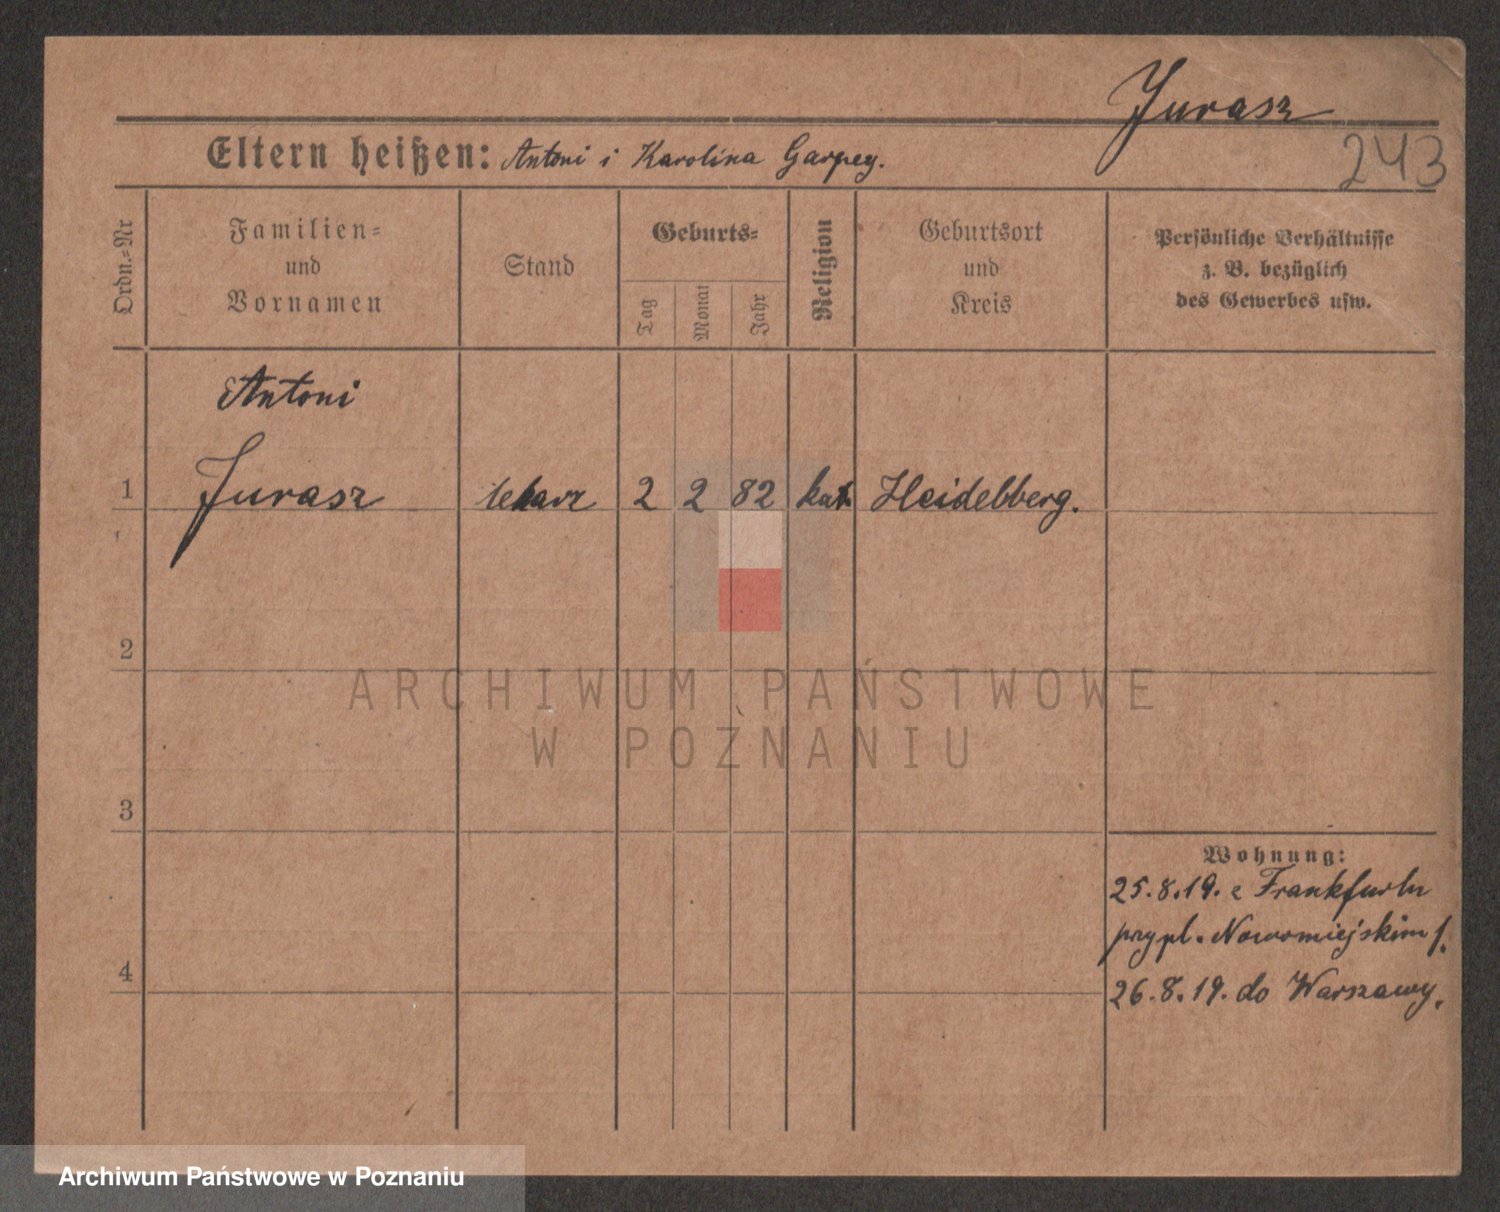 Jurasz
243
Eltern heißen: Antoni i Karolina Garpey.
Ordn.-Nr
Familien-
und
Vornamen
Stand
Geburts-
Tag
Monat
Jahr
Religion
Geburtsort
und
Kreis
Persönliche Verhältnisse
z. B. bezüglich
des Gewerbes usw.
Antoni
1 Jurasz lekarz 2 2 82 kat. Heidelberg.
2
ARCHIWUM PAŃSTWOWE
W POZNANIU
3
Wohnung:
25.8.19. z Frankfurtu
przy pl. Nowomiejskim 1.
4
26.8.19. do Warszawy.
Archiwum Państwowe w Poznaniu